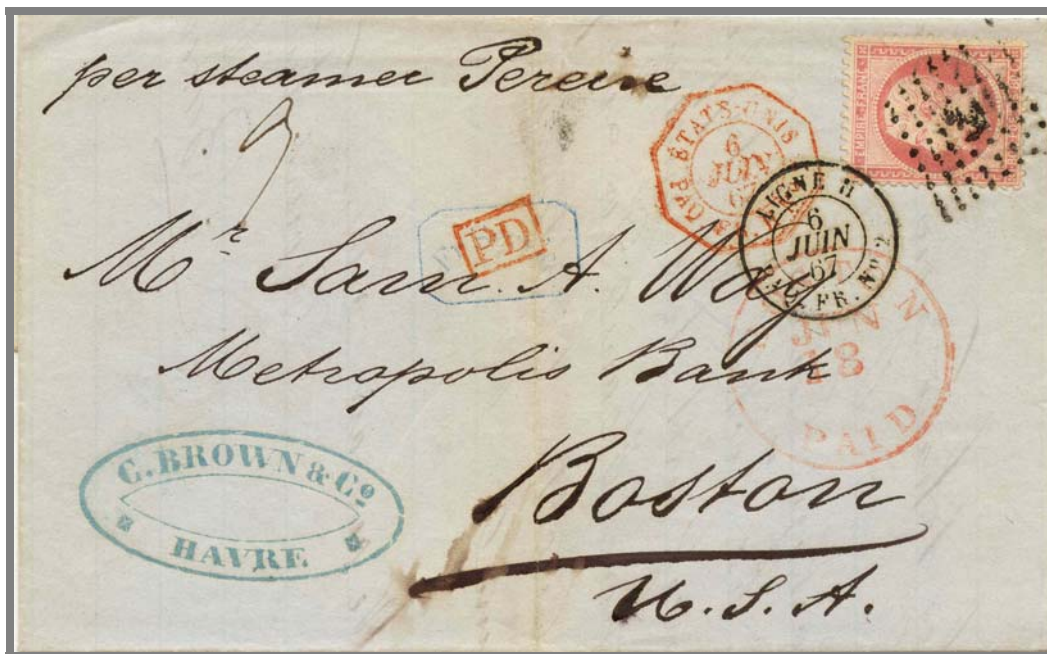 per steamer Pereire
EMPIRE FRANC
PAQ. ÉTATS-UNIS
6
JUIN
67
LIGNE H
6
JUIN
67
PAQ. FR. No 2
PD
Mr Sam. A. Way
Metropolis Bank
BOSTON
JUN
18
PAID
Boston
U.S.A.
C. BROWN & Co
HAVRE